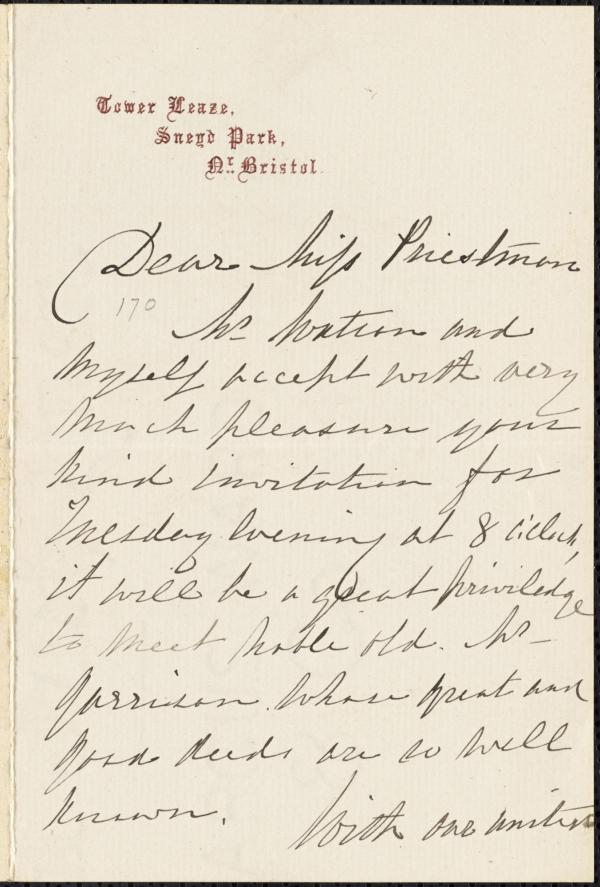 Tower Leaze,
Sneyd Park,
Nr. Bristol.
Dear Miss Priestman
170
Mr Watson and
Myself accept with very
Much pleasure your
kind invitation for
Tuesday Evening at 8 o'clock,
it will be a great priviledge
to meet noble old Mr
Garrison whose great and
good deeds are so well
known.
With our united